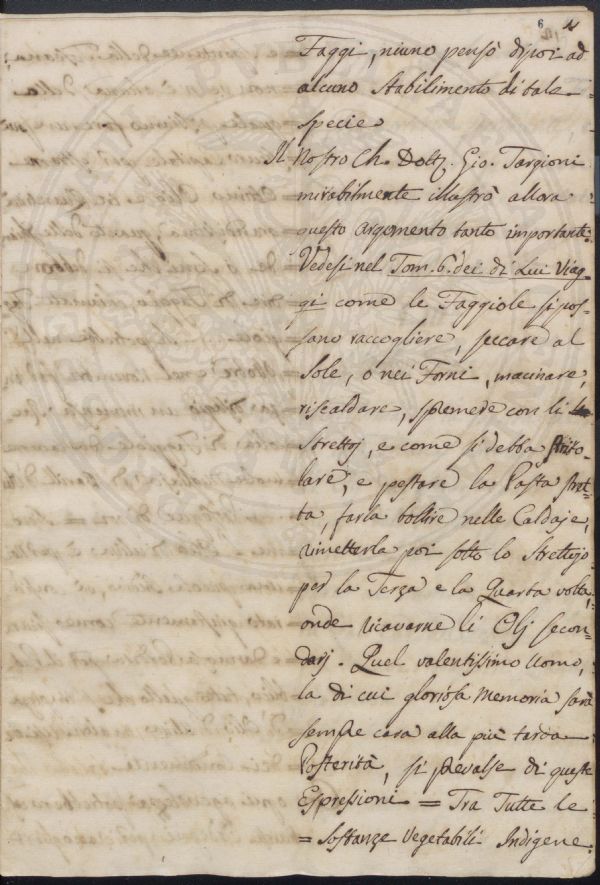 6
Faggi, niuno pensò dipoi ad
alcuno Stabilimento di tale
specie
Il Nostro Ch. Dott. Gio. Targioni
mirabilmente illustrò allora
questo argomento tanto importante.
Vedesi nel Tom. 6. dei di Lui Viag-
gi come le Faggiole si pos-
sano raccogliere, seccare al
Sole, o nei Forni, macinare,
riscaldare, spremere con li
Strettoj, e come si debba strito-
lare, e pestare la Pasta stret-
ta, farla bollire nelle Caldaje,
rimetterla poi sotto lo Strettojo
per la Terza e la Quarta volta,
onde ricavarne li Olj secon-
darj. Quel valentissimo Uomo,
la di cui gloriosa Memoria sarà
sempre cara alla più tarda
Posterità, si prevalse di queste
Espressioni = Tra Tutte le
= Sostanze Vegetabili Indigene